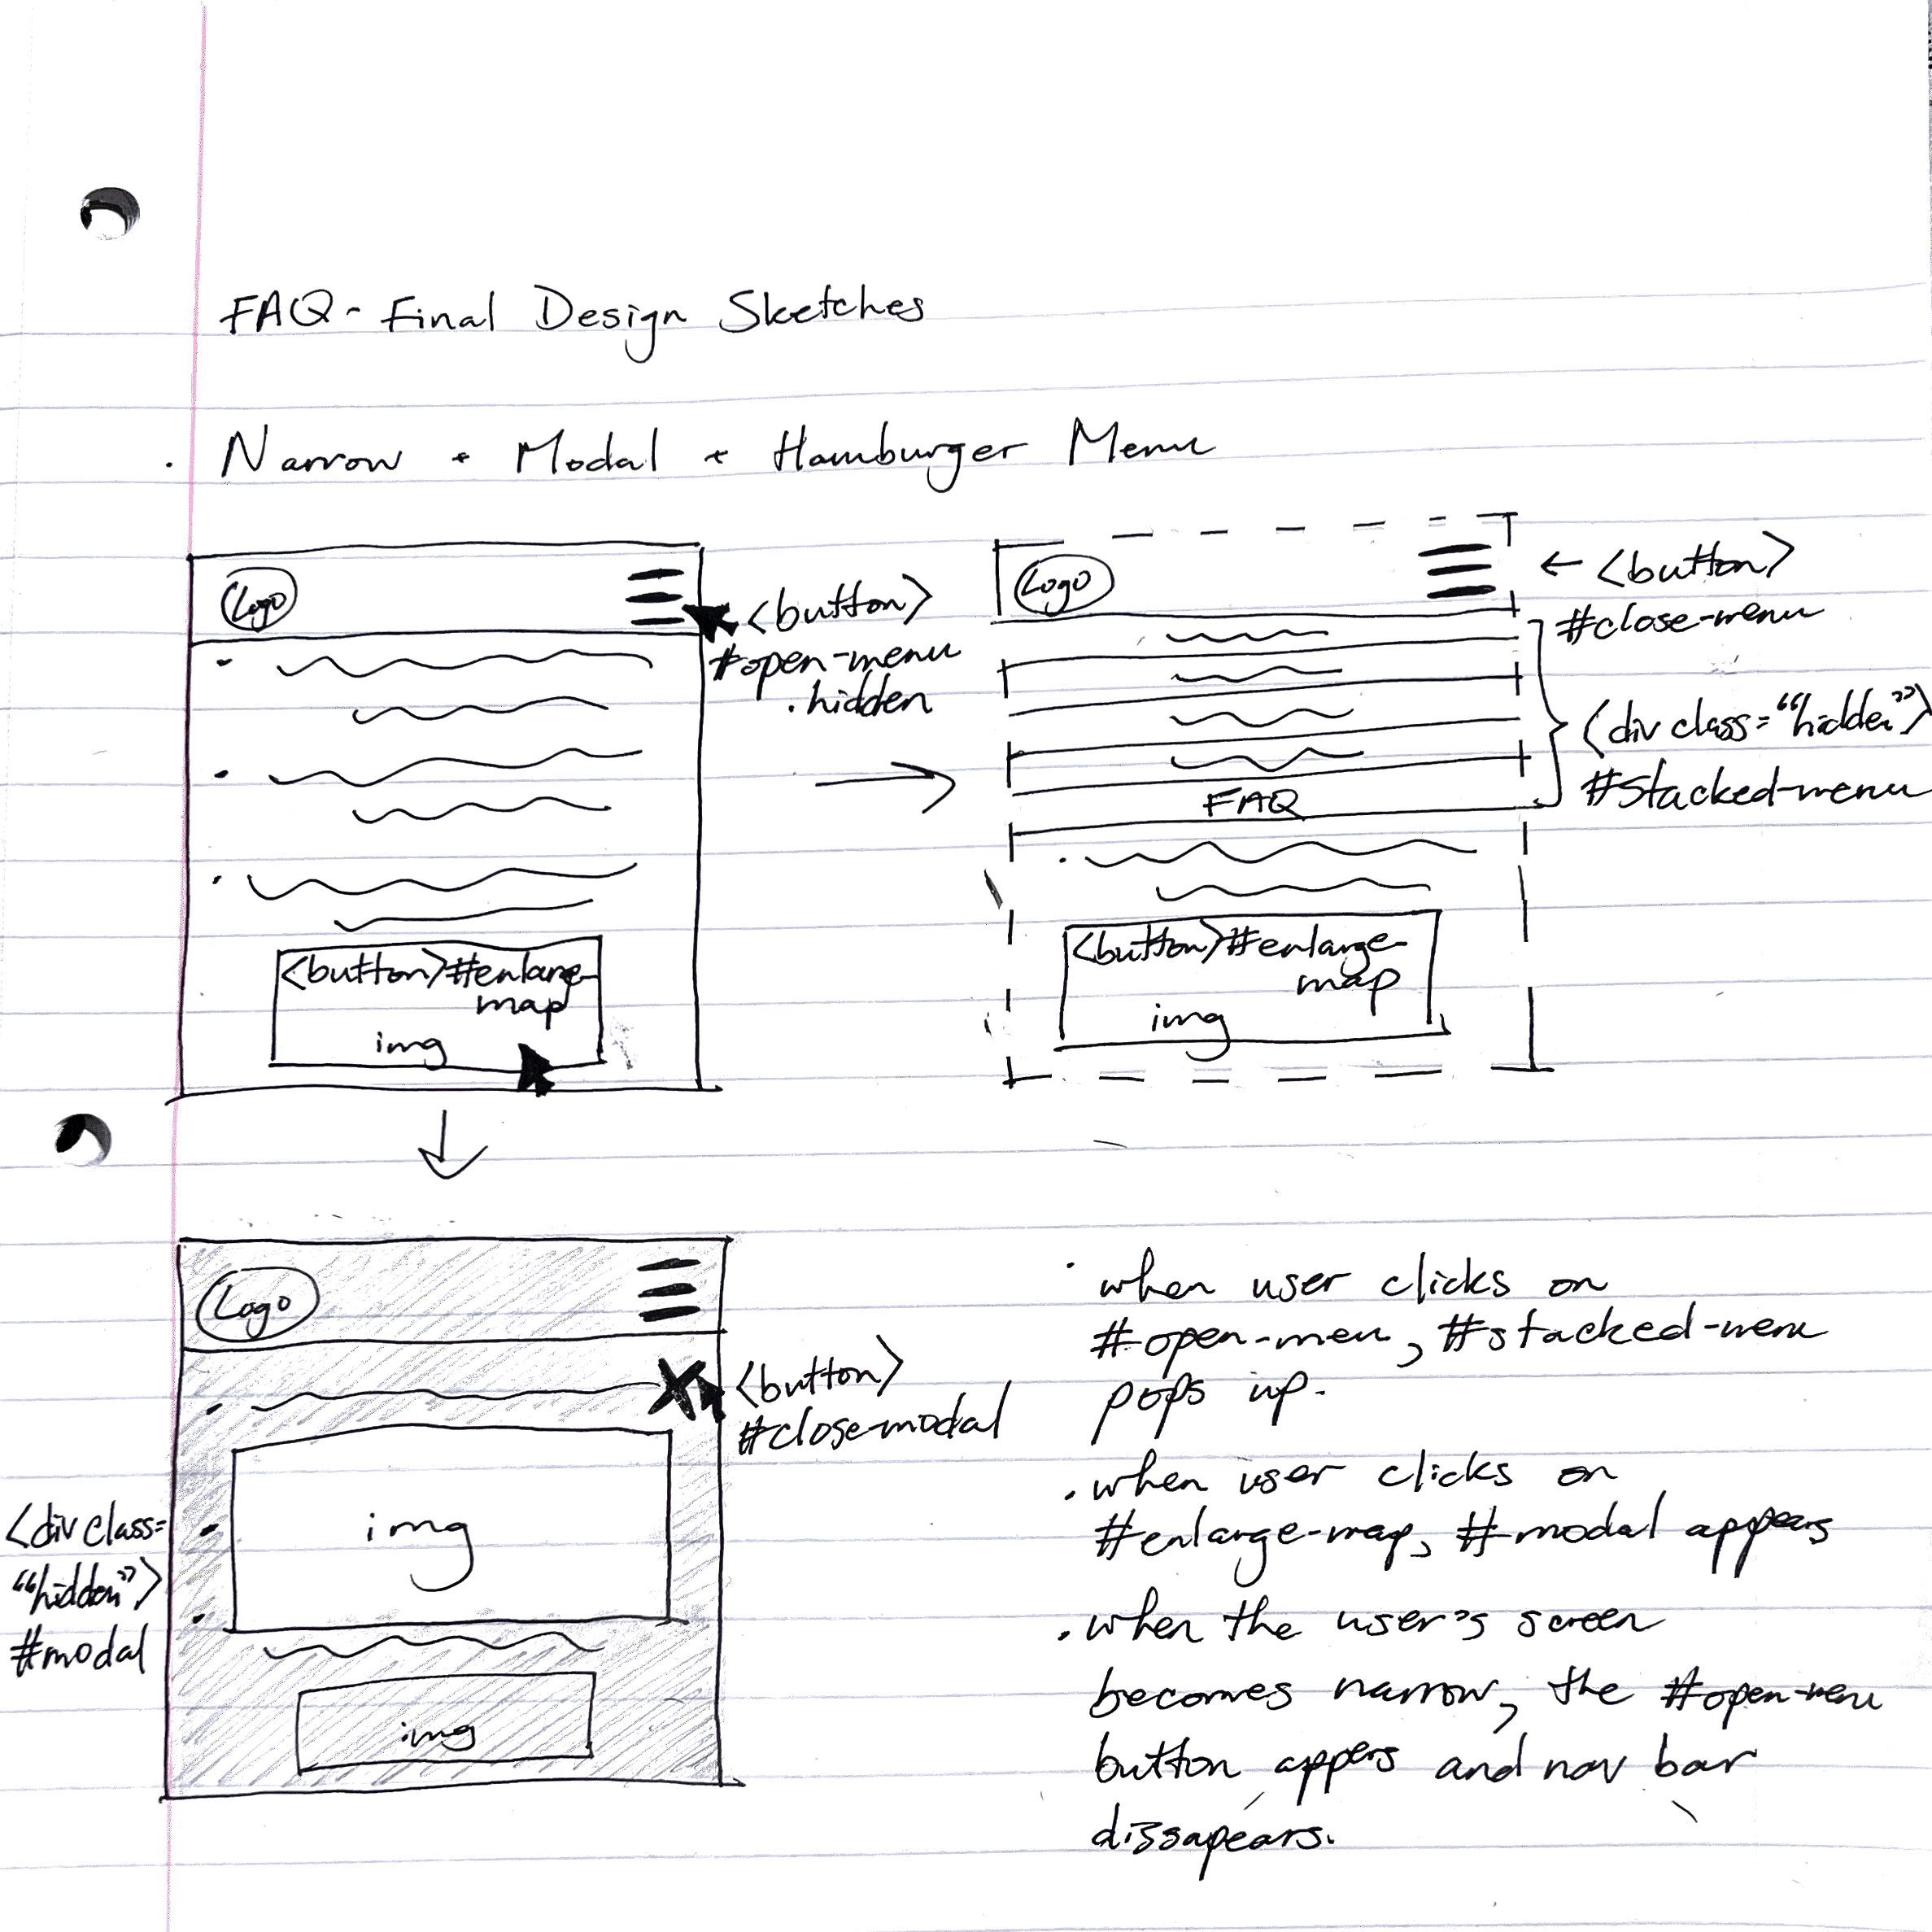 FAQ - Final Design Sketches
. Narrow + Modal + Hamburger Menu
Logo
<button>
#open-menu
.hidden
<button>#enlarge-
map
img
Logo
← <button>
#close-menu
<div class="hidden">
#stacked-menu
FAQ
<button>#enlarge-
map
img
Logo
<button>
#close-modal
<div class=
"hidden">
#modal
img
img
. when user clicks on
#open-menu, #stacked-menu
pops up.
. when user clicks on
#enlarge-map, #modal appears
. when the user's screen
becomes narrow, the #open-menu
button appers and nav bar
dissapears.